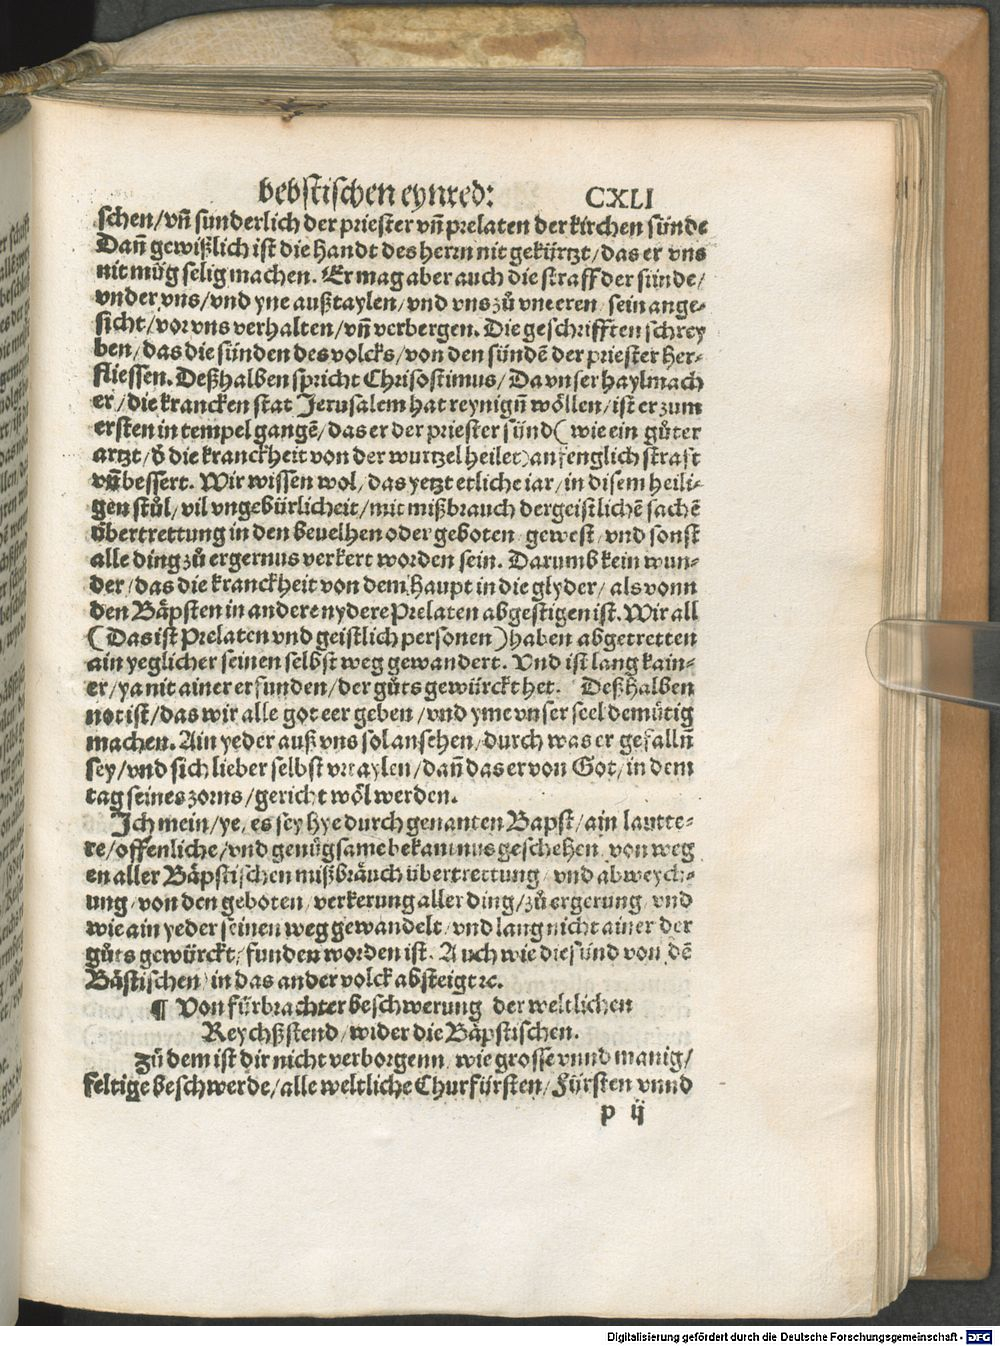 bebstischen eynred: CXLI
schen/vn̄ sunderlich der priester vn̄ prelaten der kirchen sünde
Dan̄ gewißlich ist die handt des herrn nit gekürtzt/das er vns
nit müg selig machen. Er mag aber auch die straff der sünde/
vnder vns/vnd yne außtaylen/vnd vns zů vneeren/sein ange⸗
sicht/vor vns verhalten/vn̄ verbergen. Die geschrifften schrey
ben/das die sünden des volcks/von den sündē der priester her⸗
fliessen. Deßhalben spricht Chrisostimus/Da vnser haylmach
er/die krancken stat Jerusalem hat reynigū wöllen/ist er zum
ersten in tempel gangē/das er der priester sünd(wie ein gůter
artzt/d' die kranckheit von der wurtzel heilet)anfenglich straft
vn̄ bessert. Wir wissen wol/das yetzt etliche iar/in disem heili⸗
gen stůl/vil vngebürlicheit/mit mißbrauch der geistlichē sachē
übertrettung in den beuelhen oder geboten/gewest/vnd sonst
alle ding zů ergernus verkert worden sein. Darumb kein wun⸗
der/das die kranckheit von dem haupt in die glyder/als vonn
den Bäpsten in andere nydere Prelaten abgestigen ist. Wir all
(Das ist Prelaten vnd geistlich personen)haben abgetretten
ain yeglicher seinen selbst weg gewandert. Vnd ist lang kain⸗
er/ya nit ainer erfunden/der gůts gewürckt het. Deßhalben
not ist/das wir alle got eer geben/vnd yme vnser seel demütig
machen. Ain yeder auß vns sol ansehen/durch was er gefallū
sey/vnd sich lieber selbst vrtaylen/dan̄ das er von Got/in dem
tag seines zorns/gericht wöl werden.
Ich mein/ye/es sey hye durch genanten Bapst/ain lautte⸗
re/offenliche/vnd genügsame bekantnus geschehen/von weg
en aller Bäpstischen mißbräuch übertrettung/vnd abweych⸗
ung/von den geboten/verkerung aller ding/zů ergerung/vnd
wie ain yeder seinen weg gewandelt/vnd lang nicht ainer der
gůts gewürckt/funden worden ist. Auch wie die sünd von dē
Bästischen/in das ander volck absteigt ⁊c.
¶ Von fürbrachter beschwerung der weltlichen
Reychßstend/wider die Bäpstischen.
Zů dem ist dir nicht verborgenn/wie grosse vnnd manig/
feltige beschwerde/alle weltliche Churfürsten/Fürsten vnnd
p ij
Digitalisierung gefördert durch die Deutsche Forschungsgemeinschaft - DFG